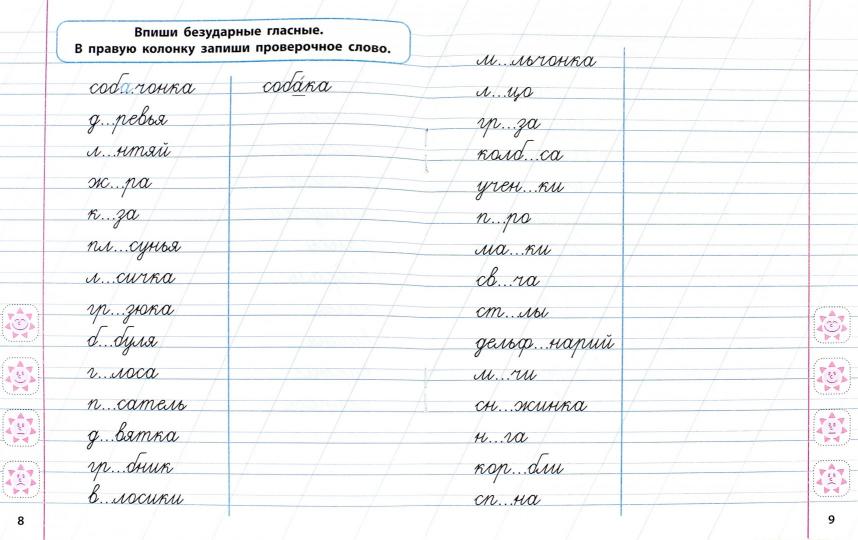 Впиши безударные гласные.
В правую колонку запиши проверочное слово.
собачонка соба́ка
д...ревья
л...нтяй
ж...ра
к...за
пл...сунья
л...сичка
гр...зюка
б...буля
г...лоса
п...сатель
д...вятка
гр...бник
в...лосики
8
м...льчонка
л...цо
гр...за
колб...са
учен...ки
п...ро
ма...ки
св...ча
ст...лы
дельф...нарий
м...чи
сн...жинка
н...га
кор...бли
сп...на
9